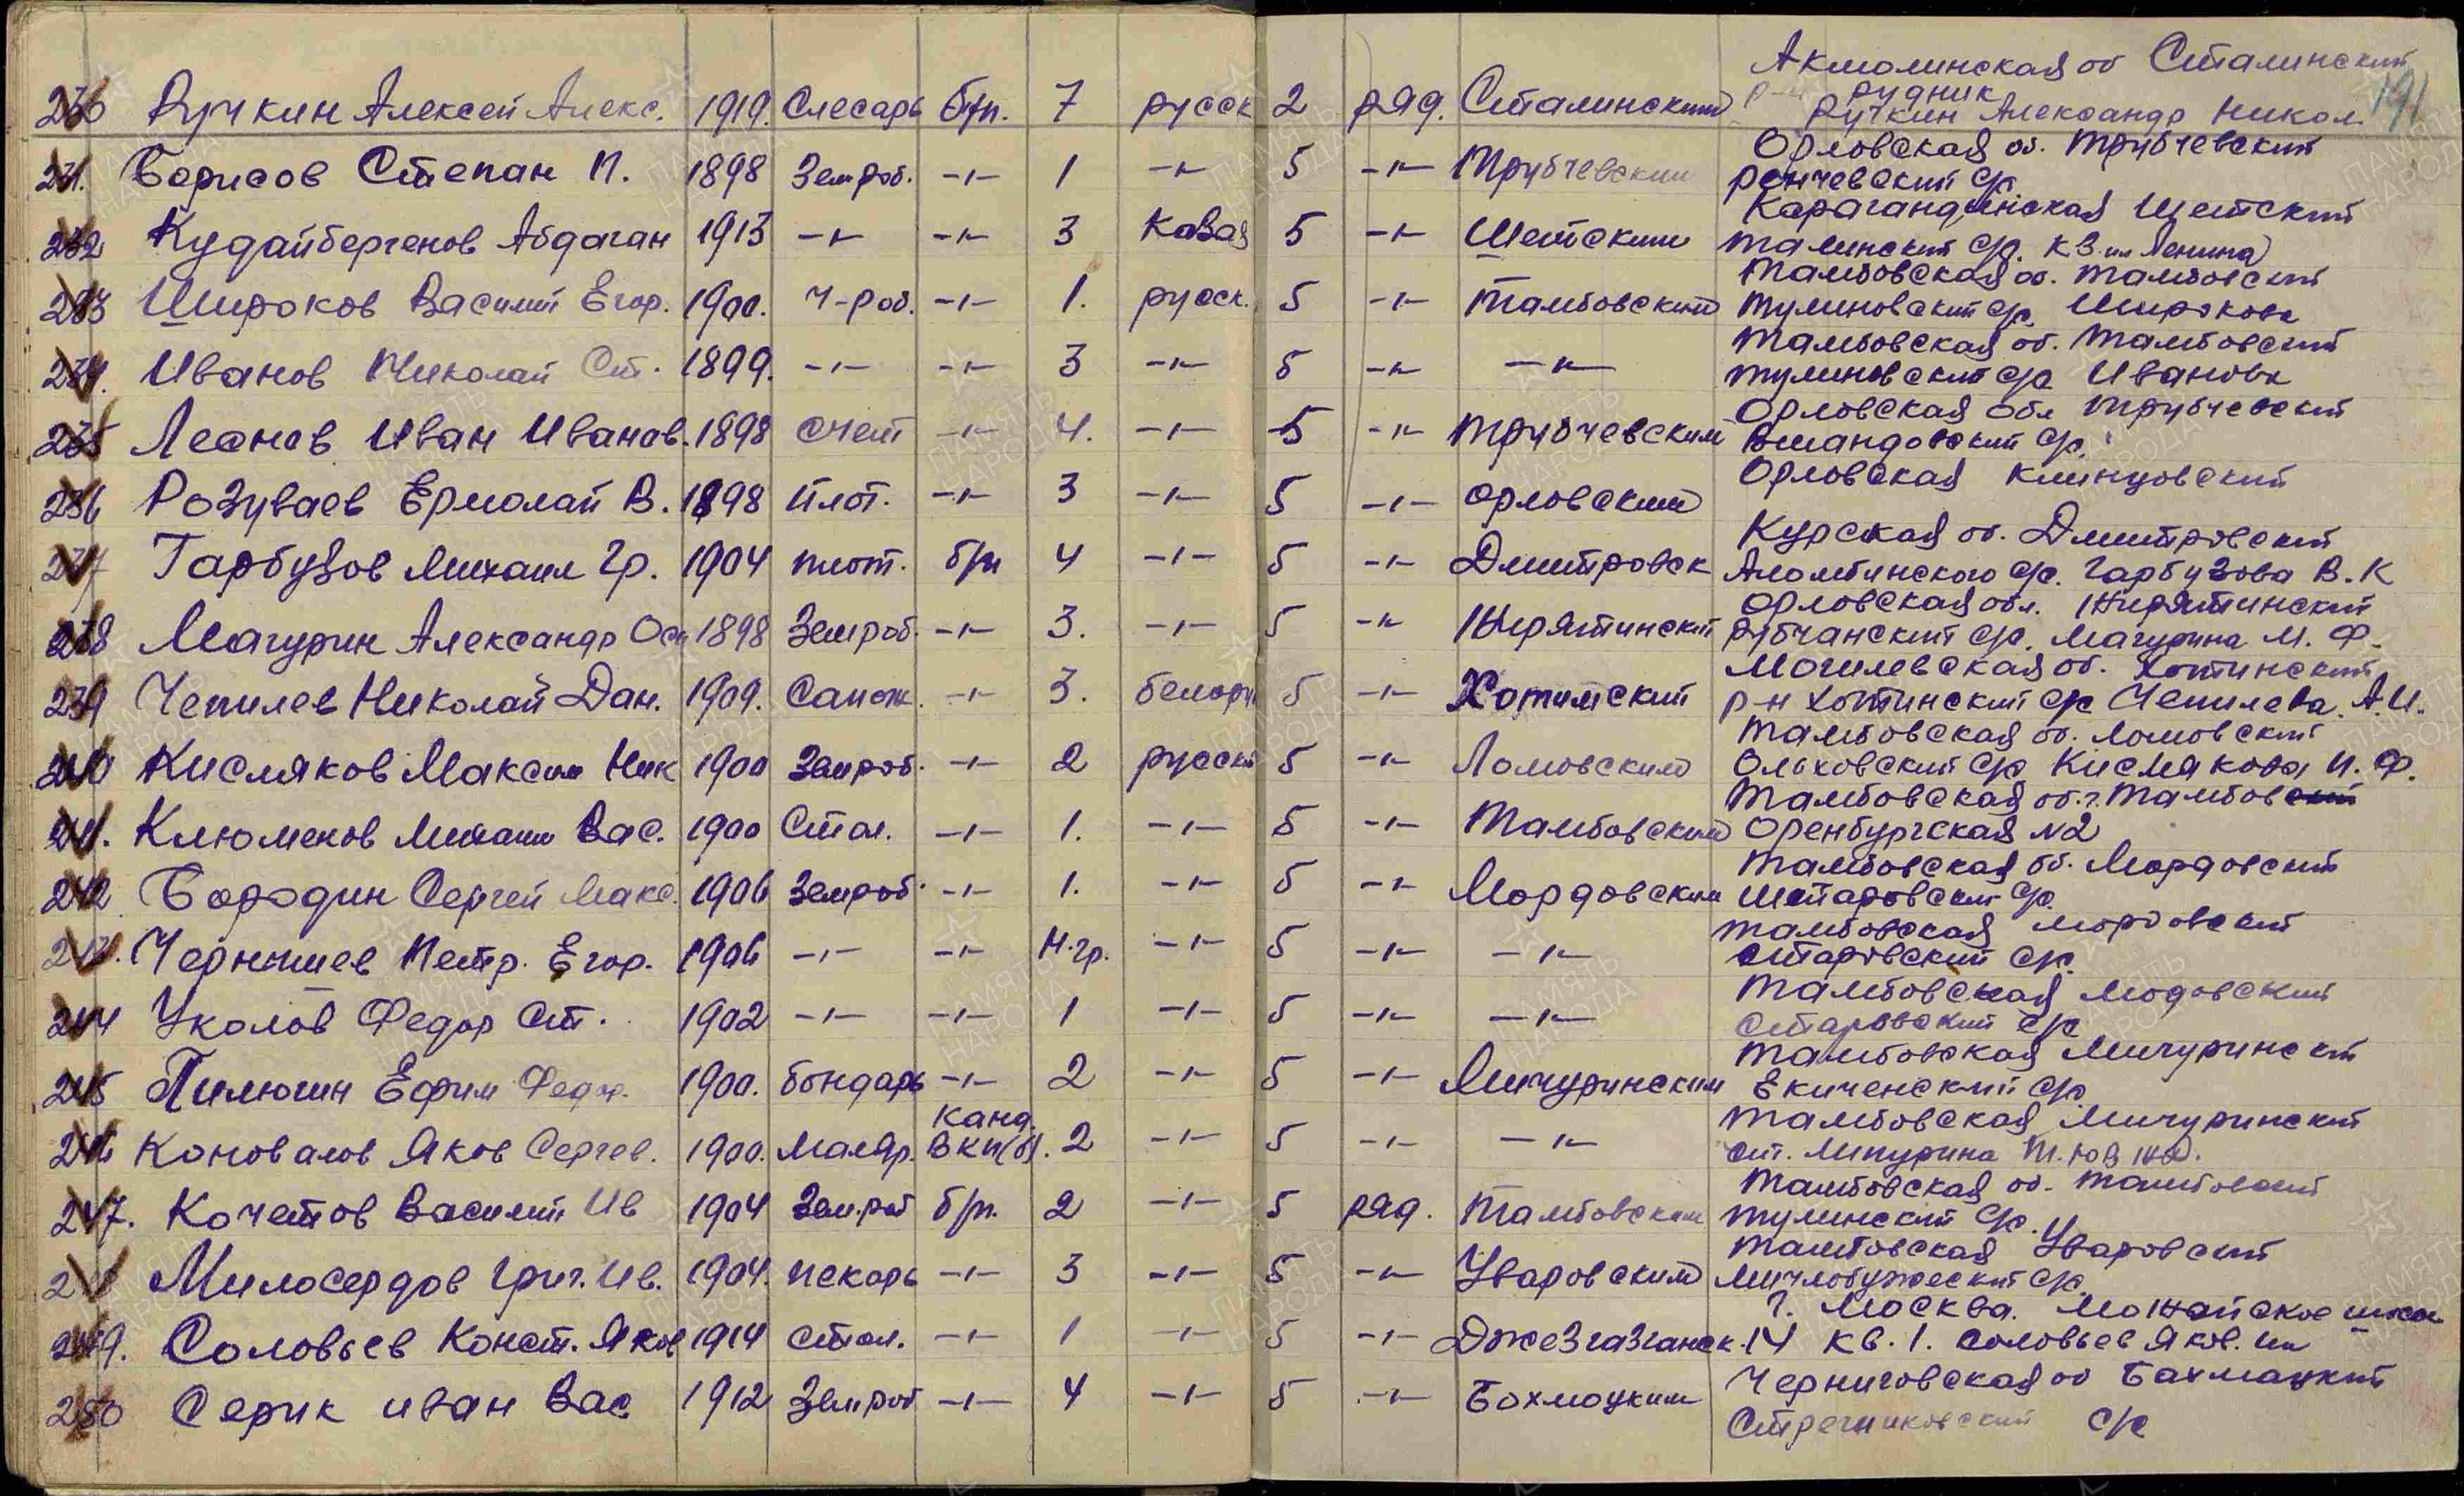 191
230 Ручкин Алексей Алекс. 1919. Слесарь б/п. 7 русск 2 ряд. Сталинским Акмолинская об Сталинский
р-н рудник
Ручкин Александр Никол.
231. Борисов Степан П. 1898 Земраб. -"- 1 -"- 5 -"- Трубчевским Орловская об. Трубчевский
с/с
232 Кудайбергенов Абдаган 1913 -"- -"- 3 Казах 5 -"- Шетским Карагандинская Шетский
Талинский с/с. кз. им Ленина
233 Широков Василий Егор. 1900. Ч-раб. -"- 1. русск. 5 -"- Тамбовским Тамбовская об. Тамбовский
Тулиновский с/с. Широкова
234. Иванов Николай Ст. 1899. -"- -"- 3 -"- 5 -"- -"- Тамбовская об. Тамбовский
Тулиновский с/с Иванова
235 Леонов Иван Иванов. 1898 счет -"- 4. -"- 5 -"- Трубчевским Орловская обл Трубчевский
с/с.
236 Розуваев Ермолай В. 1898 плот. -"- 3 -"- 5 -"- Орловским Орловская Клинцовский
237 Гарбузов Михаил Гр. 1904 плот. б/п 4 -"- 5 -"- Дмитровск Курская об. Дмитровский
с/с. Гарбузова В. К
238 Мачурин Александр Оси 1898 Земраб. -"- 3. -"- 5 -"- Жирятинский Орловская обл. Жирятинский
Рубчанский с/с. Мачурина М. Ф.
239 Чепилев Николай Дан. 1909. Сапож. -"- 3. белору 5 -"- Хотимский Могилевская об. Хотинский
р-н Хотинский с/с Чепилева. А.И.
240 Кисляков Максим Ник 1900 Земраб. -"- 2 русский 5 -"- Ломовским Тамбовская об. Ломовский
Ольховский с/с Кислякова И. Ф.
241. Клюменов Михаил Вас. 1900 Стол. -"- 1. -"- 5 -"- Тамбовским Тамбовская об. г. Тамбовский
Оренбургская №2
242 Бородин Сергей Макс. 1906 Земраб. -"- 1. -"- 5 -"- Мордовским Тамбовская об. Мордовский
с/с.
243. Чернышев Петр. Егор. 1906 -"- -"- Н.гр. -"- 5 -"- -"- Тамбовская Мордовский
Старовский с/с.
244 Уколов Федор Ст. 1902 -"- -"- 1 -"- 5 -"- -"- Тамбовская Модовский
Старовский с/с
245 Пилюгин Ефим Федор. 1900. бондарь -"- 2 -"- 5 -"- Мичуринским Тамбовская Мичуринский
с/с
246 Коновалов Яков Сергев. 1900. Маляр. Канд. ВКП(б). 2 -"- 5 -"- -"- Тамбовская Мичуринский
ст. Мичурина
247. Кочетов Василий Ив 1904 Зем.раб б/п. 2 -"- 5 ряд. Тамбовским Тамбовская об. Тамбовский
Тулинский с/с.
248 Милосердов Григ. Ив. 1904. пекарь -"- 3 -"- 5 -"- Уваровским Тамбовская Уваровский
с/с.
249. Соловьев Конст. Яков 1914 стол. -"- 1 -"- 5 -"- Джезгазганск. г. Москва. Можайское шоссе
14 кв. 1. Соловьев Яков.
250 Серик Иван Вас 1912 Земраб -"- 4 -"- 5 -"- Бохмоцким Черниговская об Бахмацкий
с/с